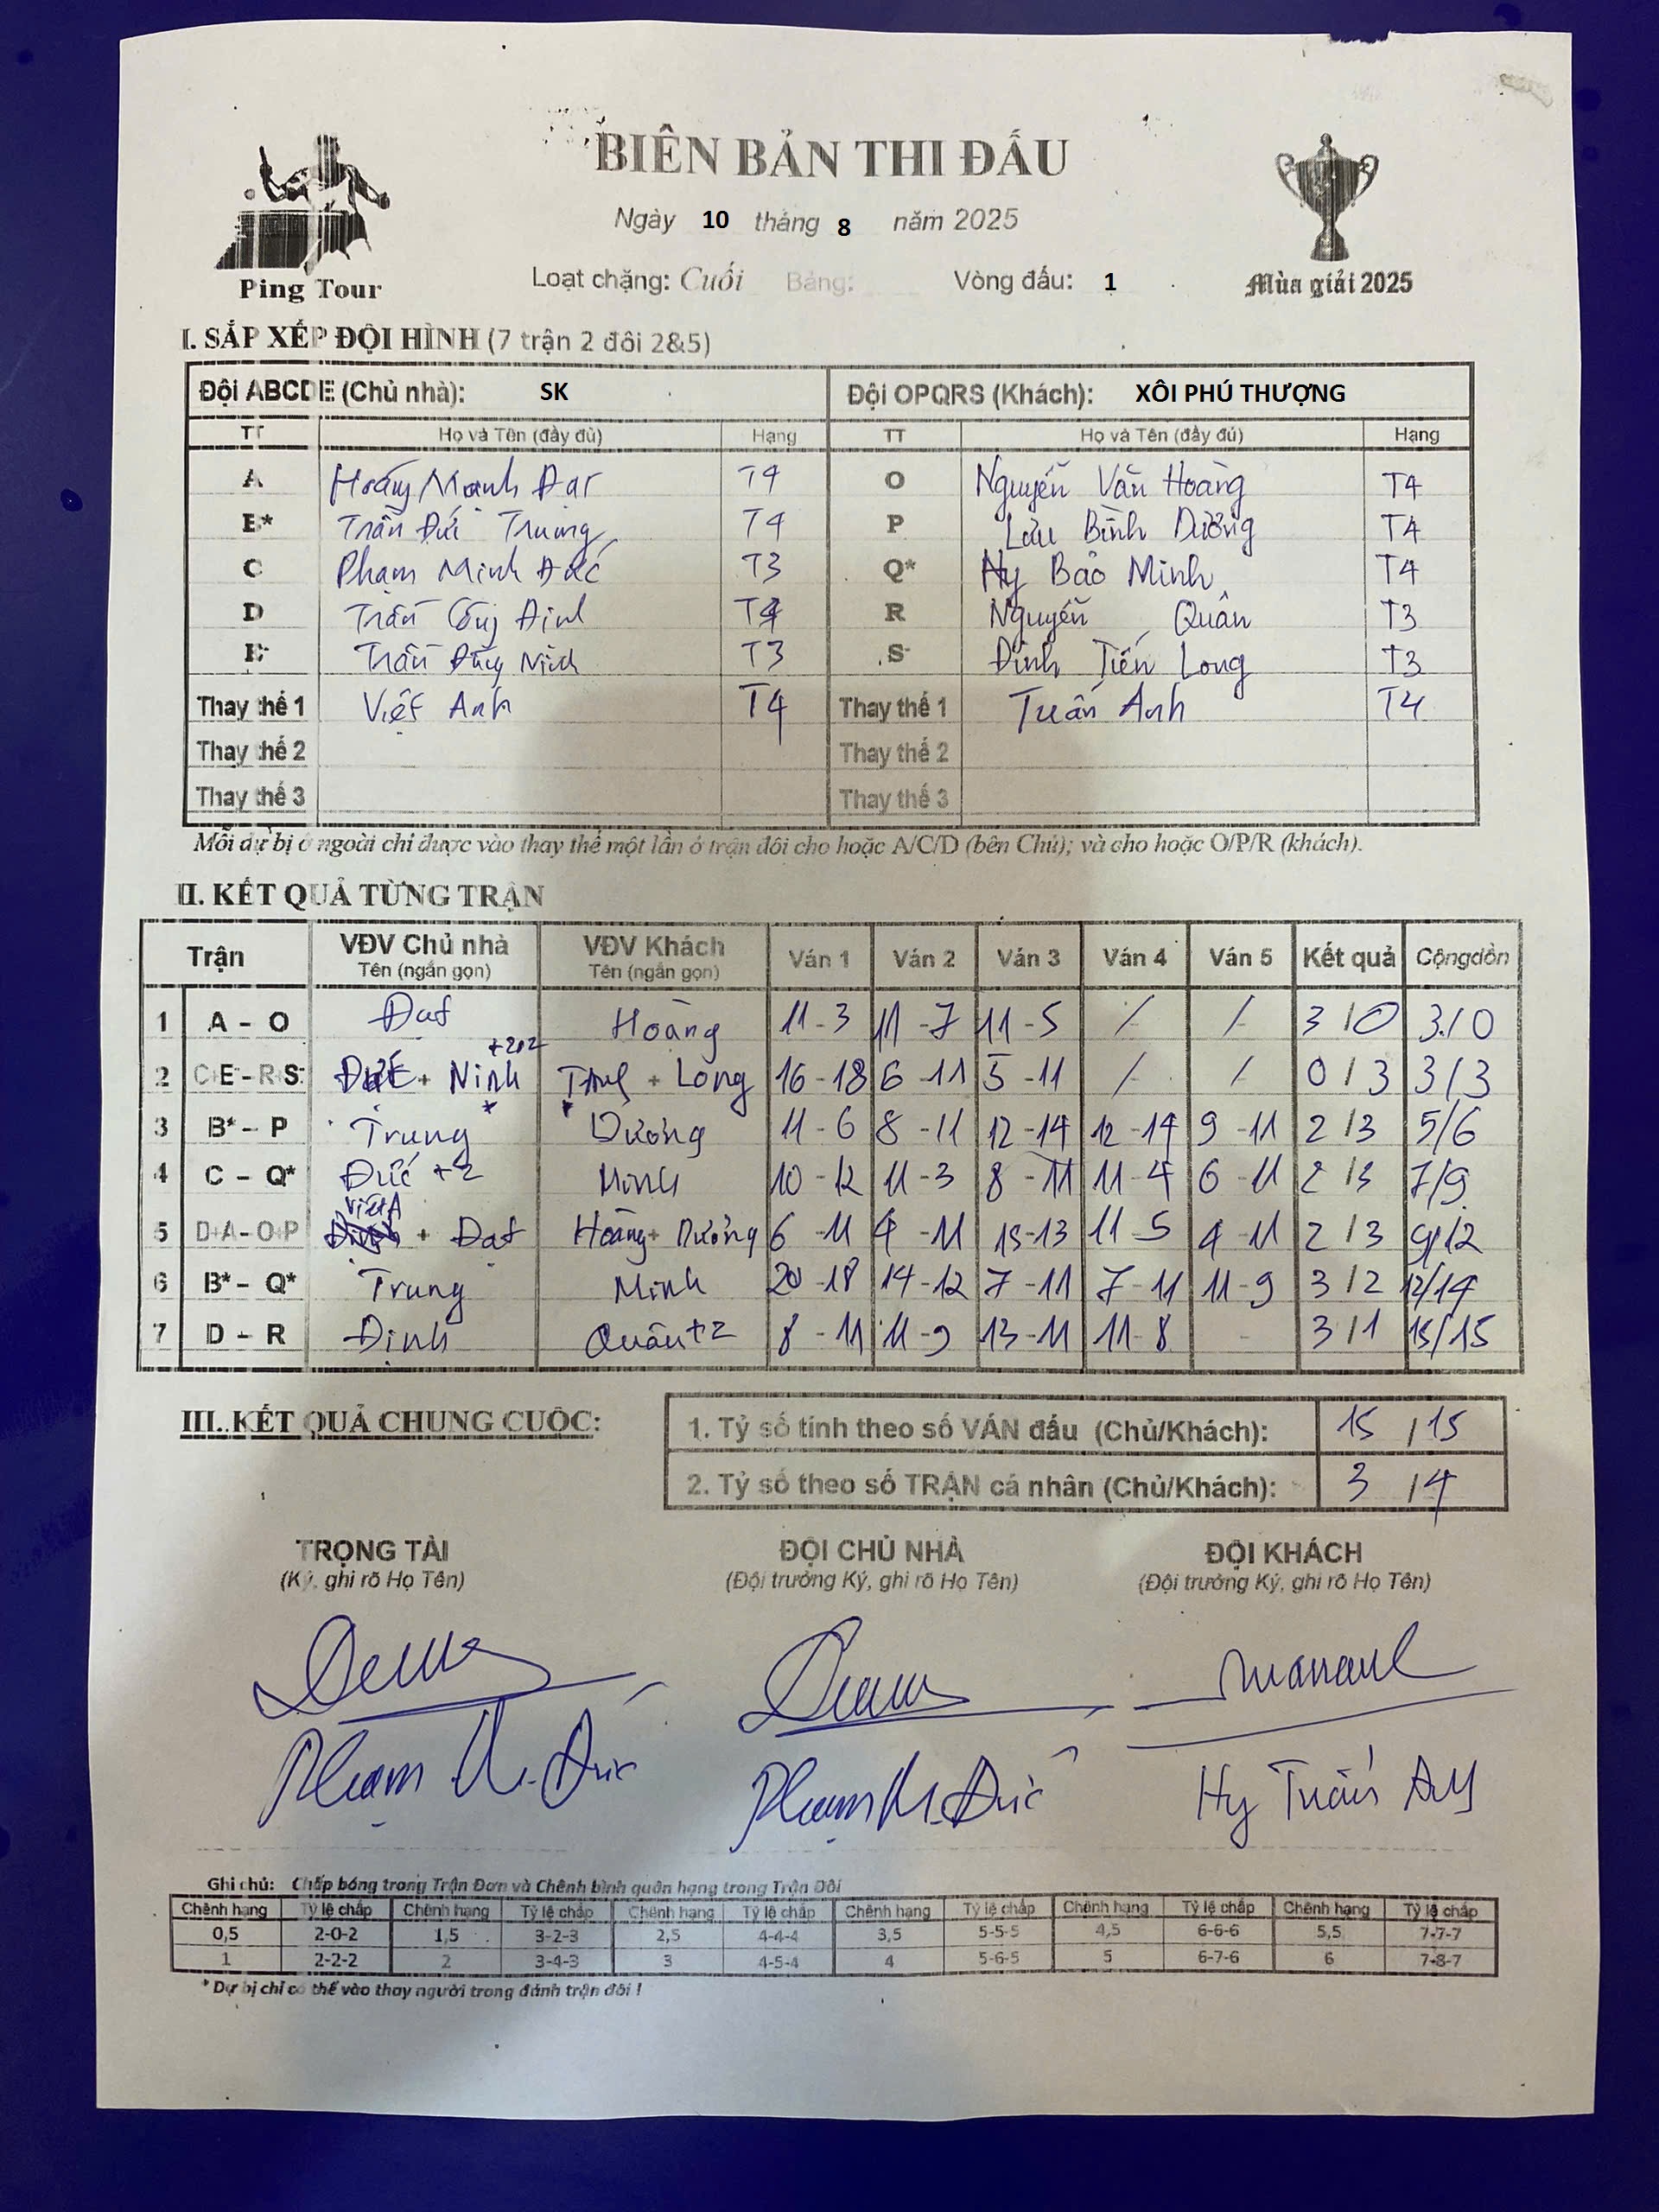 BIÊN BẢN THI ĐẤU
Ngày 10 tháng 8 năm 2025
Ping Tour
Loạt chặng: Cuối Bảng: Vòng đấu: 1
Mùa giải 2025
I. SẮP XẾP ĐỘI HÌNH (7 trận 2 đôi 2&5)
Đội ABCDE (Chủ nhà): SK Đội OPQRS (Khách): XÔI PHÚ THƯỢNG
TT Họ và Tên (đầy đủ) Hạng TT Họ và Tên (đầy đủ) Hạng
A Hoàng Mạnh Đạt T4 O Nguyễn Văn Hoàng T4
B* Trần Đức Trung T4 P Lưu Bình Dương T4
C Phạm Minh Đức T3 Q* Hy Bảo Minh T4
D Trần Công Định T4 R Nguyễn Quân T3
E- Trần Đăng Ninh T3 S- Đinh Tiến Long T3
Thay thế 1 Việt Anh T4 Thay thế 1 Tuấn Anh T4
Thay thế 2 Thay thế 2
Thay thế 3 Thay thế 3
Mỗi dự bị ở ngoài chỉ được vào thay thế một lần ở trận đôi cho hoặc A/C/D (bên Chủ); và cho hoặc O/P/R (khách).
II. KẾT QUẢ TỪNG TRẬN
Trận VĐV Chủ nhà Tên (ngắn gọn) VĐV Khách Tên (ngắn gọn) Ván 1 Ván 2 Ván 3 Ván 4 Ván 5 Kết quả Cộng dồn
1 A - O Đạt Hoàng 11 - 3 11 - 7 11 - 5 / / 3 / 0 3 / 0
2 C+E- - R+S- Đức + Ninh +202 + Long 16 - 18 6 - 11 5 - 11 / / 0 / 3 3 / 3
3 B* - P Trung Dương 11 - 6 8 - 11 12 - 14 12 - 14 9 - 11 2 / 3 5/6
4 C - Q* Đức +2 Minh 10 - 12 11 - 3 8 - 11 11 - 4 6 - 11 2 / 3 7/9
5 D+A - O+P Việt A + Đạt Hoàng + Dương 6 - 11 4 - 11 15 - 13 11 - 5 4 - 11 2 / 3 9/12
6 B* - Q* Trung Minh 20 - 18 14 - 12 7 - 11 7 - 11 11 - 9 3 / 2 12/14
7 D - R Định Quân +2 8 - 11 11 - 9 13 - 11 11 - 8 - 3 / 1 15/15
III. KẾT QUẢ CHUNG CUỘC:
1. Tỷ số tính theo số VÁN đấu (Chủ/Khách): 15 / 15
2. Tỷ số theo số TRẬN cá nhân (Chủ/Khách): 3 / 4
TRỌNG TÀI ĐỘI CHỦ NHÀ ĐỘI KHÁCH
(Ký, ghi rõ Họ Tên) (Đội trưởng Ký, ghi rõ Họ Tên) (Đội trưởng Ký, ghi rõ Họ Tên)
Phạm M. Đức Phạm M. Đức Hy Tuấn Anh
Ghi chú: Chấp bóng trong Trận Đơn và Chênh bình quân hạng trong Trận Đôi
Chênh hạng Tỷ lệ chấp Chênh hạng Tỷ lệ chấp Chênh hạng Tỷ lệ chấp Chênh hạng Tỷ lệ chấp Chênh hạng Tỷ lệ chấp Chênh hạng Tỷ lệ chấp
0,5 2-0-2 1,5 3-2-3 2,5 4-4-4 3,5 5-5-5 4,5 6-6-6 5,5 7-7-7
1 2-2-2 2 3-4-3 3 4-5-4 4 5-6-5 5 6-7-6 6 7-8-7
* Dự bị chỉ có thể vào thay người trong đánh trận đôi !